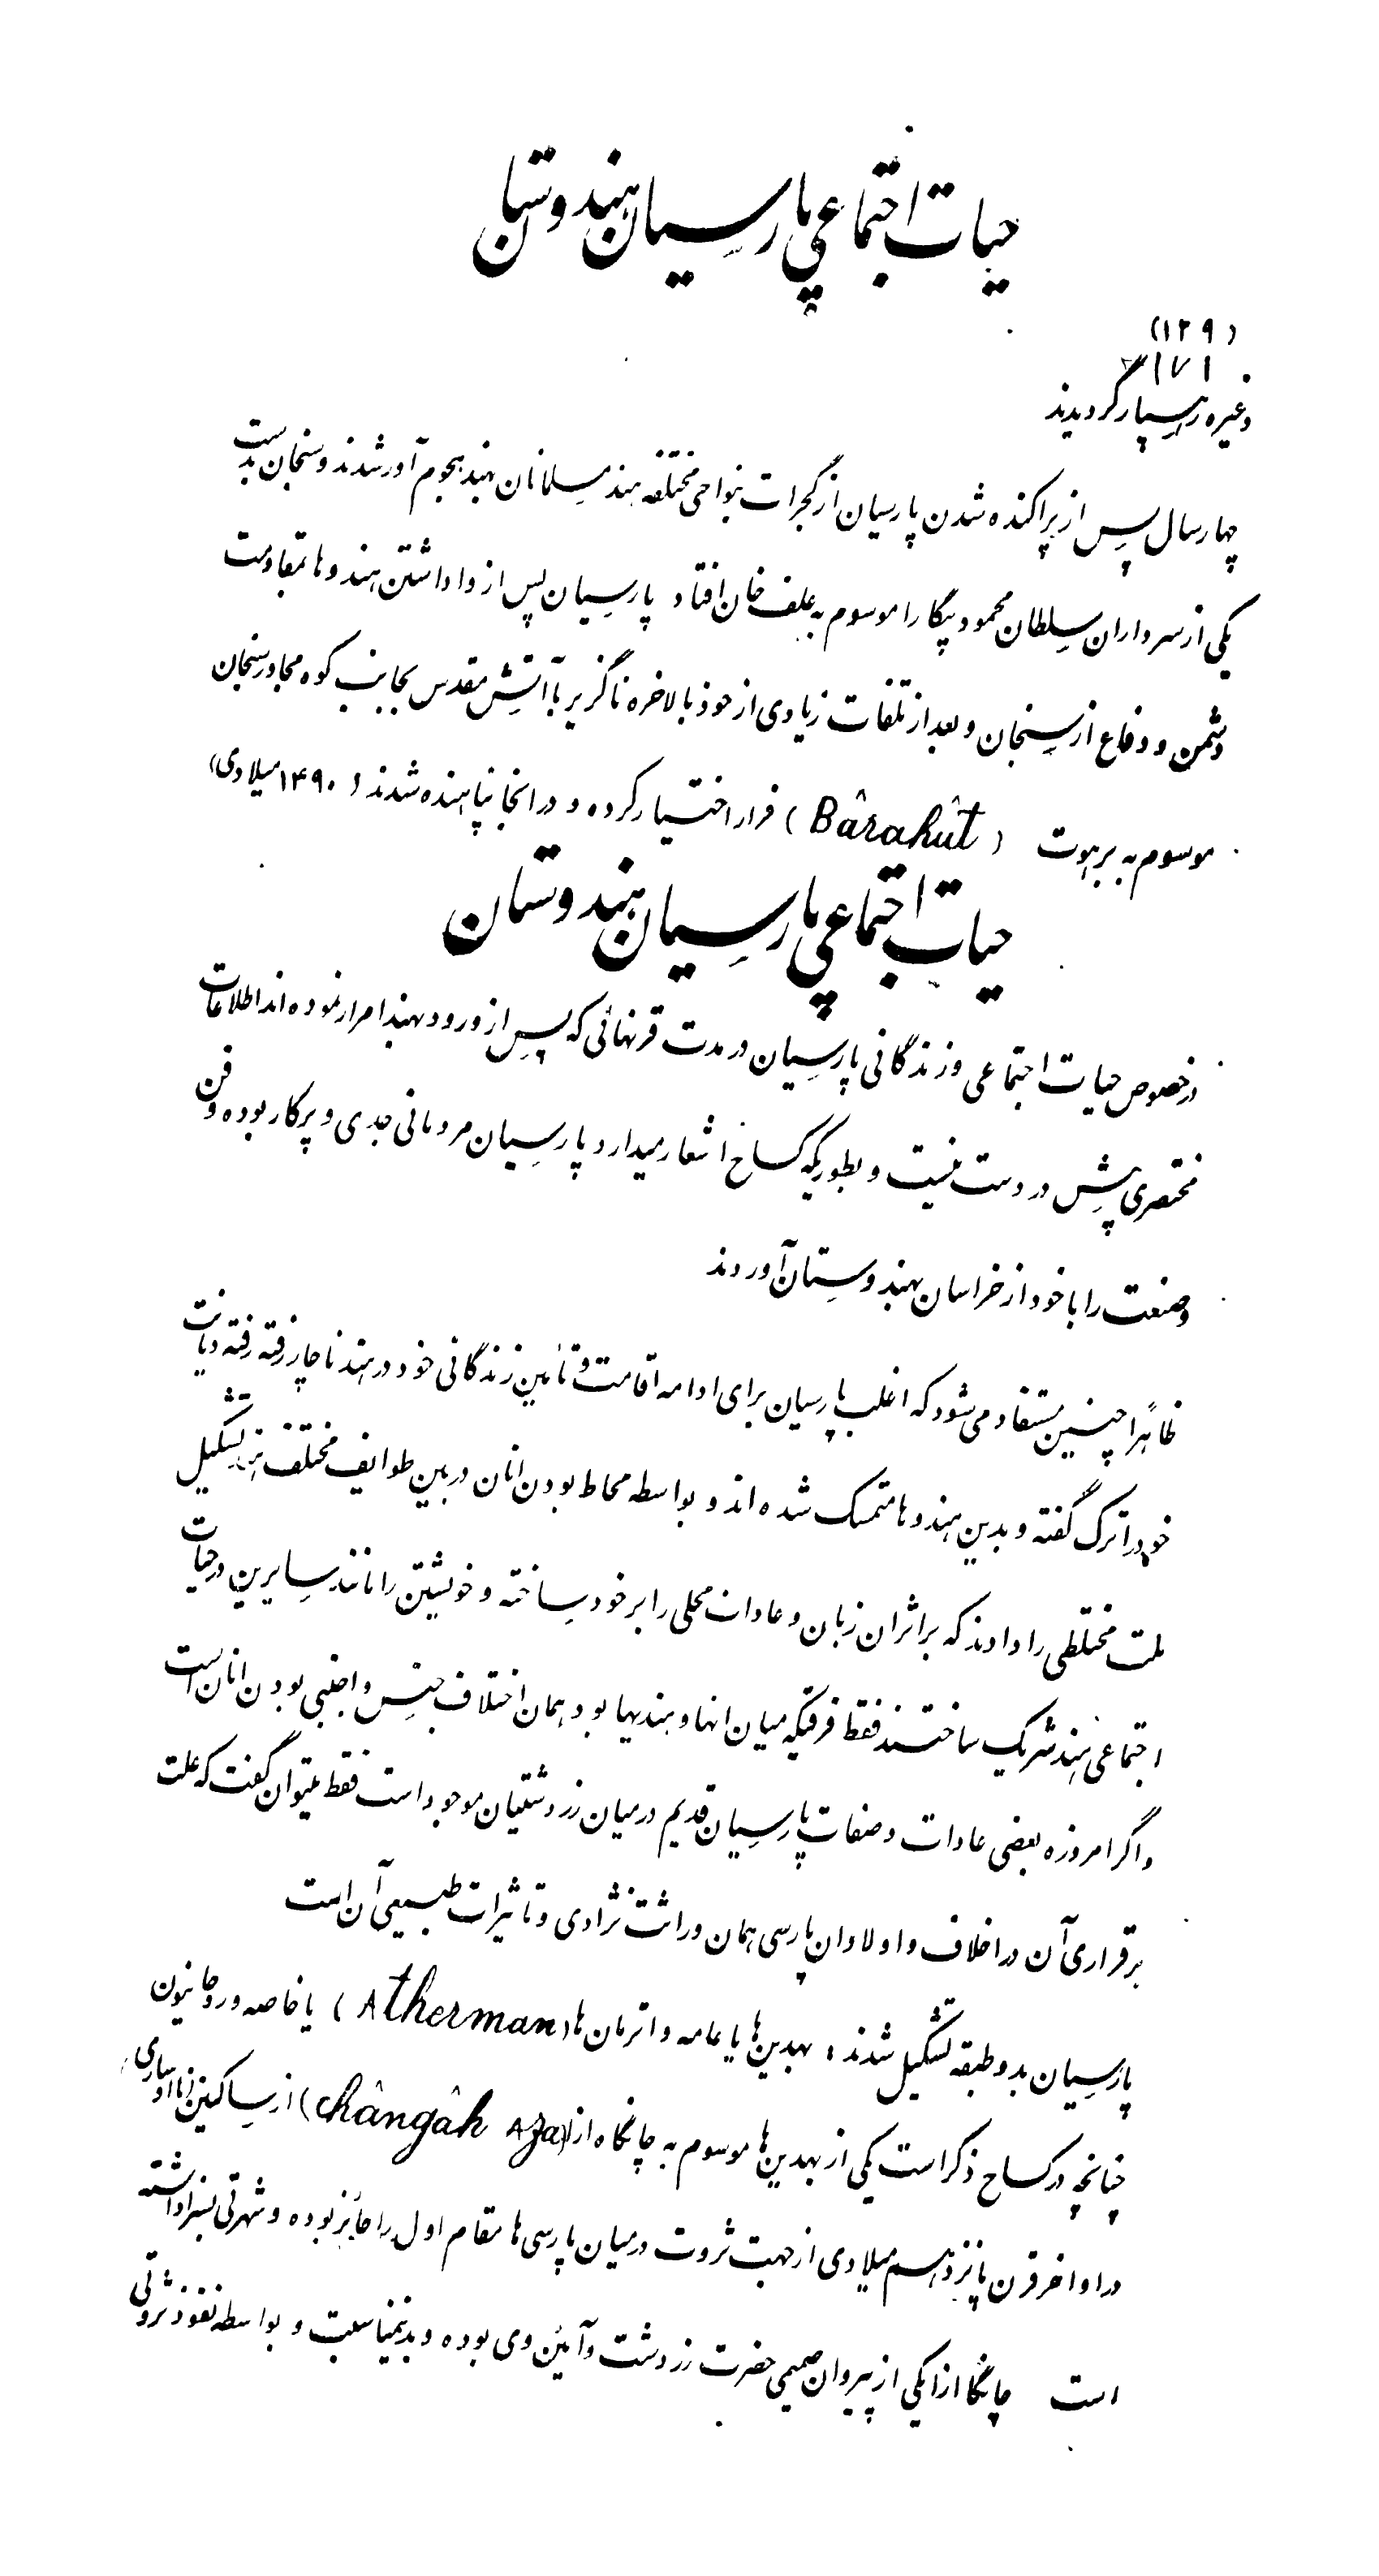 حیات اجتماعی پارسیان هندوستان
(۱۲۹)
۱۷۱
وغیره رهسپار گردیدند
چهارسال پس از پراکنده شدن پارسیان از گجرات بنواحی مختلفه هند مسلمانان بهند هجوم آور شدند و سنجان بدست
یکی از سرداران سلطان محمود بیگارا موسوم به علف خان افتاد پارسیان پس از واداشتن هندوها بمقاومت
دشمن و دفاع از سنجان و بعد از تلفات زیادی از خود بالاخره ناگزیر با آتش مقدس بجانب کوه مجاور سنجان
موسوم به برهوت (Bârahût) فرار اختیار کرده و در انجا پناهنده شدند (۱۴۹۰ میلادی)
حیات اجتماعی پارسیان هندوستان
در خصوص حیات اجتماعی و زندگانی پارسیان در مدت قرنهائی که پس از ورود بهند امرار نموده اند اطلاعات
مختصری بیش در دست نیست و بطوریکه کساخ اشعار میدارد پارسیان مردمانی جدی و پرکار بوده و فن
و صنعت را با خود از خراسان بهندوستان آوردند
ظاهراً چنین مستفاد می شود که اغلب پارسیان برای ادامه اقامت و تأمین زندگانی خود در هند ناچار رفته رفته دیانت
خود را ترک گفته و بدین هندوها متمسک شده اند و بواسطه محاط بودن انان در بین طوایف مختلف هند تشکیل
ملت مختلطی را دادند که بر اثر ان زبان و عادات محلی را بر خود ساخته و خویشتن را مانند سایرین در حیات
اجتماعی هند شریک ساختند فقط فرقیکه میان انها و هندیها بود همان اختلاف جنس و اجنبی بودن انان است
و اگر امروزه بعضی عادات و صفات پارسیان قدیم در میان زردشتیان موجود است فقط میتوان گفت که علت
برقراری آن در اخلاف و اولادان پارسی همان وراثت نژادی و تاثیرات طبیعی آن است
پارسیان بدو طبقه تشکیل شدند: بهدین ها یا عامه و اترمان ها (Atherman) یا خاصه و روحانیون
چنانچه در کساح ذکر است یکی از بهدین ها موسوم به چانگاه ازا (Chângâh Aza) از ساکنین ناوساری
در اواخر قرن پانزدهم میلادی از جهت ثروت در میان پارسی ها مقام اول را حائز بوده و شهرتی بسزا داشته
است چانگا ازا یکی از پیروان صمیمی حضرت زردشت و آیین وی بوده و بدینمناسبت و بواسطه نفوذ ثروتی